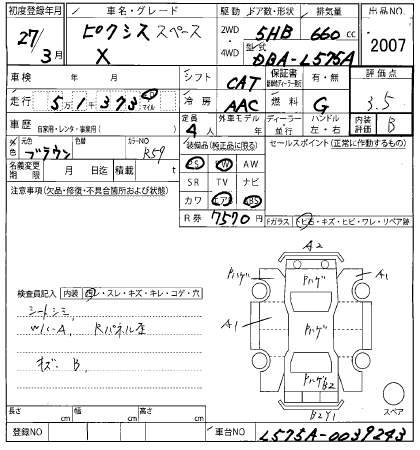 初度登録年月
27/3月
車名・グレード
ピクシス スペース
X
駆動
2WD
4WD
ドア数・形状
5HB
排気量
660 cc
型式
DBA-L575A
出品NO
2007
車検 年 月
シフト
CAT
保証書
有・無
評価点
3.5
走行
5万1千373
km
マイル
冷房
AAC
燃料
G
車歴
自家用・レンタ・事業用( )
定員
4人
外車モデル
年
ディーラー
並行
ハンドル
左・右
内装評価
B
外色
元色
ブラウン
色替
カラーNO
R59
装備品(純正品に限る)
PS PW AW
SR TV ナビ
カワ エアB ABS
セールスポイント(正常に作動するもの)
名義変更期限
月 日迄
積載
t
R券
7570円
注意事項(欠品・修復・不具合箇所および状態)
Fガラス
トビ石・キズ・ヒビ・ワレ・リペア跡
A2
Pハゲ
Pハゲ
A1
A1
Pハゲ
PハゲB2
B2Y1
スペア
検査員記入
内装
汚レ・スレ・キズ・キレ・コゲ・穴
シートシミ
W/C-A
Rパネル歪
キズ B
長さ cm
幅 cm
高さ cm
登録NO
車台NO
L575A-0039243